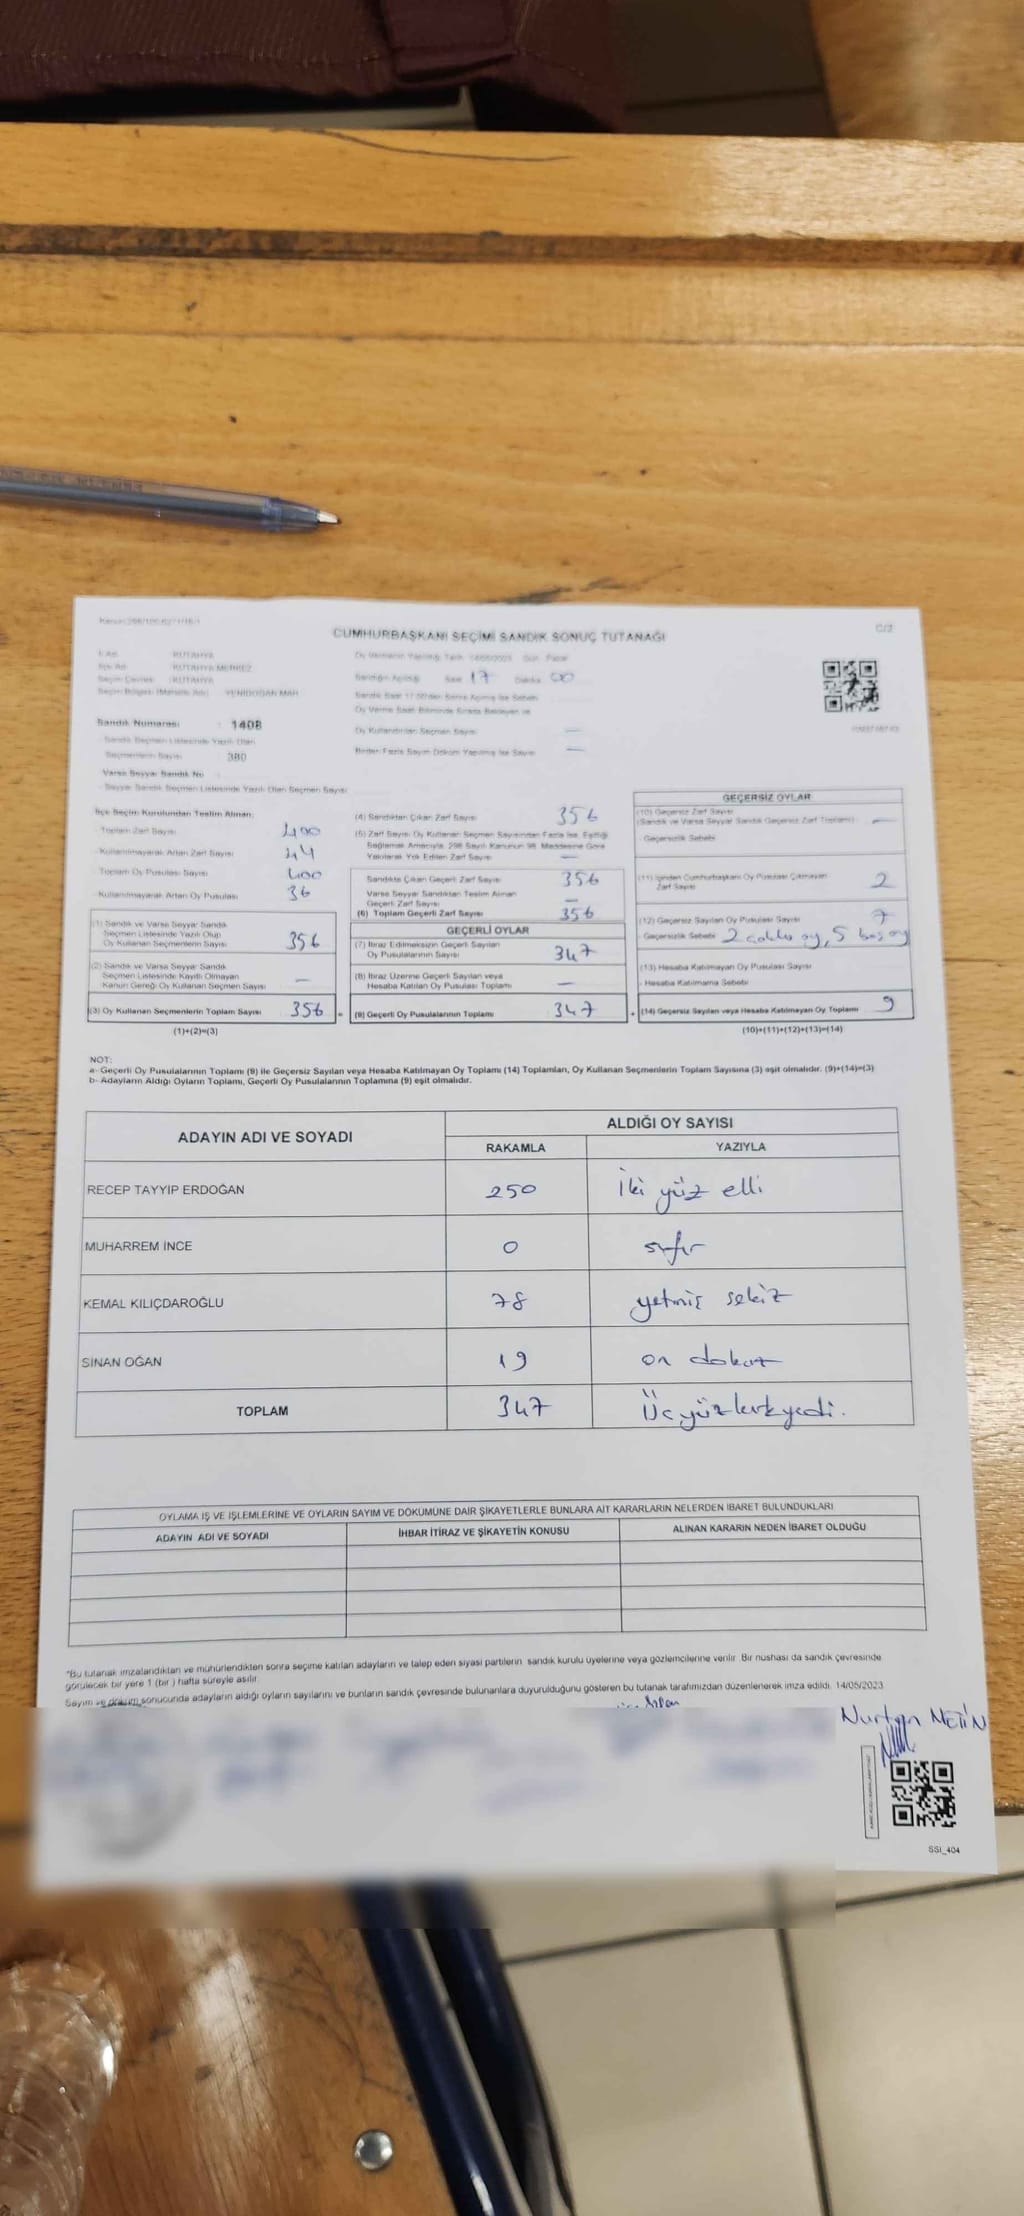 C/2
CUMHURBAŞKANI SEÇİMİ SANDIK SONUÇ TUTANAĞI
KÜTAHYA
KÜTAHYA MERKEZ
KÜTAHYA
YENİDOĞAN MAH
Sandığın Açıldığı Saat 17 Dakika 00
Sandık Numarası : 1408
Sandık Seçmen Listesinde Yazılı Olan
Seçmenlerin Sayısı : 380
Varsa Seyyar Sandık No
Seyyar Sandık Seçmen Listesinde Yazılı Olan Seçmen Sayısı
Oy Kullandırılan Seçmen Sayısı —
Birden Fazla Sayım Döküm Yapılmış İse Sayısı —
İlçe Seçim Kurulundan Teslim Alınan;
- Toplam Zarf Sayısı 400
- Kullanılmayarak Artan Zarf Sayısı 44
- Toplam Oy Pusulası Sayısı 400
- Kullanılmayarak Artan Oy Pusulası 36
(1) Sandık ve Varsa Seyyar Sandık
Seçmen Listesinde Yazılı Olup
Oy Kullanan Seçmenlerin Sayısı 356
(2) Sandık ve Varsa Seyyar Sandık
Seçmen Listesinde Kayıtlı Olmayan
Kanun Gereği Oy Kullanan Seçmen Sayısı —
(3) Oy Kullanan Seçmenlerin Toplam Sayısı 356 =
(1)+(2)=(3)
(4) Sandıktan Çıkan Zarf Sayısı 356
(5) Zarf Sayısı Oy Kullanan Seçmen Sayısından Fazla İse, Eşitliği
Sağlamak Amacıyla, 298 Sayılı Kanunun 98. Maddesine Göre
Yakılarak Yok Edilen Zarf Sayısı —
Sandıkta Çıkan Geçerli Zarf Sayısı 356
Varsa Seyyar Sandıktan Teslim Alınan
Geçerli Zarf Sayısı —
(6) Toplam Geçerli Zarf Sayısı 356
GEÇERLİ OYLAR
(7) İtiraz Edilmeksizin Geçerli Sayılan
Oy Pusulalarının Sayısı 347
(8) İtiraz Üzerine Geçerli Sayılan veya
Hesaba Katılan Oy Pusulası Toplamı —
(9) Geçerli Oy Pusulalarının Toplamı 347 +
GEÇERSİZ OYLAR
(10) Geçersiz Zarf Sayısı
(Sandık ve Varsa Seyyar Sandık Geçersiz Zarf Toplamı) —
- Geçersizlik Sebebi
(11) İçinden Cumhurbaşkanı Oy Pusulası Çıkmayan
Zarf Sayısı 2
(12) Geçersiz Sayılan Oy Pusulası Sayısı 7
Geçersizlik Sebebi 2 çoklu oy, 5 boş oy
(13) Hesaba Katılmayan Oy Pusulası Sayısı
- Hesaba Katılmama Sebebi
(14) Geçersiz Sayılan veya Hesaba Katılmayan Oy Toplamı 9
(10)+(11)+(12)+(13)=(14)
NOT:
a- Geçerli Oy Pusulalarının Toplamı (9) ile Geçersiz Sayılan veya Hesaba Katılmayan Oy Toplamı (14) Toplamları, Oy Kullanan Seçmenlerin Toplam Sayısına (3) eşit olmalıdır. (9)+(14)=(3)
b- Adayların Aldığı Oyların Toplamı, Geçerli Oy Pusulalarının Toplamına (9) eşit olmalıdır.
ADAYIN ADI VE SOYADI ALDIĞI OY SAYISI
RAKAMLA YAZIYLA
RECEP TAYYİP ERDOĞAN 250 İki yüz elli
MUHARREM İNCE 0 sıfır
KEMAL KILIÇDAROĞLU 78 yetmiş sekiz
SİNAN OĞAN 19 on dokuz
TOPLAM 347 Üçyüzkırkyedi.
OYLAMA İŞ VE İŞLEMLERİNE VE OYLARIN SAYIM VE DÖKÜMÜNE DAİR ŞİKAYETLERLE BUNLARA AİT KARARLARIN NELERDEN İBARET BULUNDUKLARI
ADAYIN ADI VE SOYADI İHBAR İTİRAZ VE ŞİKAYETİN KONUSU ALINAN KARARIN NEDEN İBARET OLDUĞU
*Bu tutanak imzalandıktan ve mühürlendikten sonra seçime katılan adayların ve talep eden siyasi partilerin sandık kurulu üyelerine veya gözlemcilerine verilir. Bir nüshası da sandık çevresinde
görülecek bir yere 1 (bir ) hafta süreyle asılır.
Sayım ve döküm sonucunda adayların aldığı oyların sayılarını ve bunların sandık çevresinde bulunanlara duyurulduğunu gösteren bu tutanak tarafımızdan düzenlenerek imza edildi. 14/05/2023
Nurten METİN
SSI_404